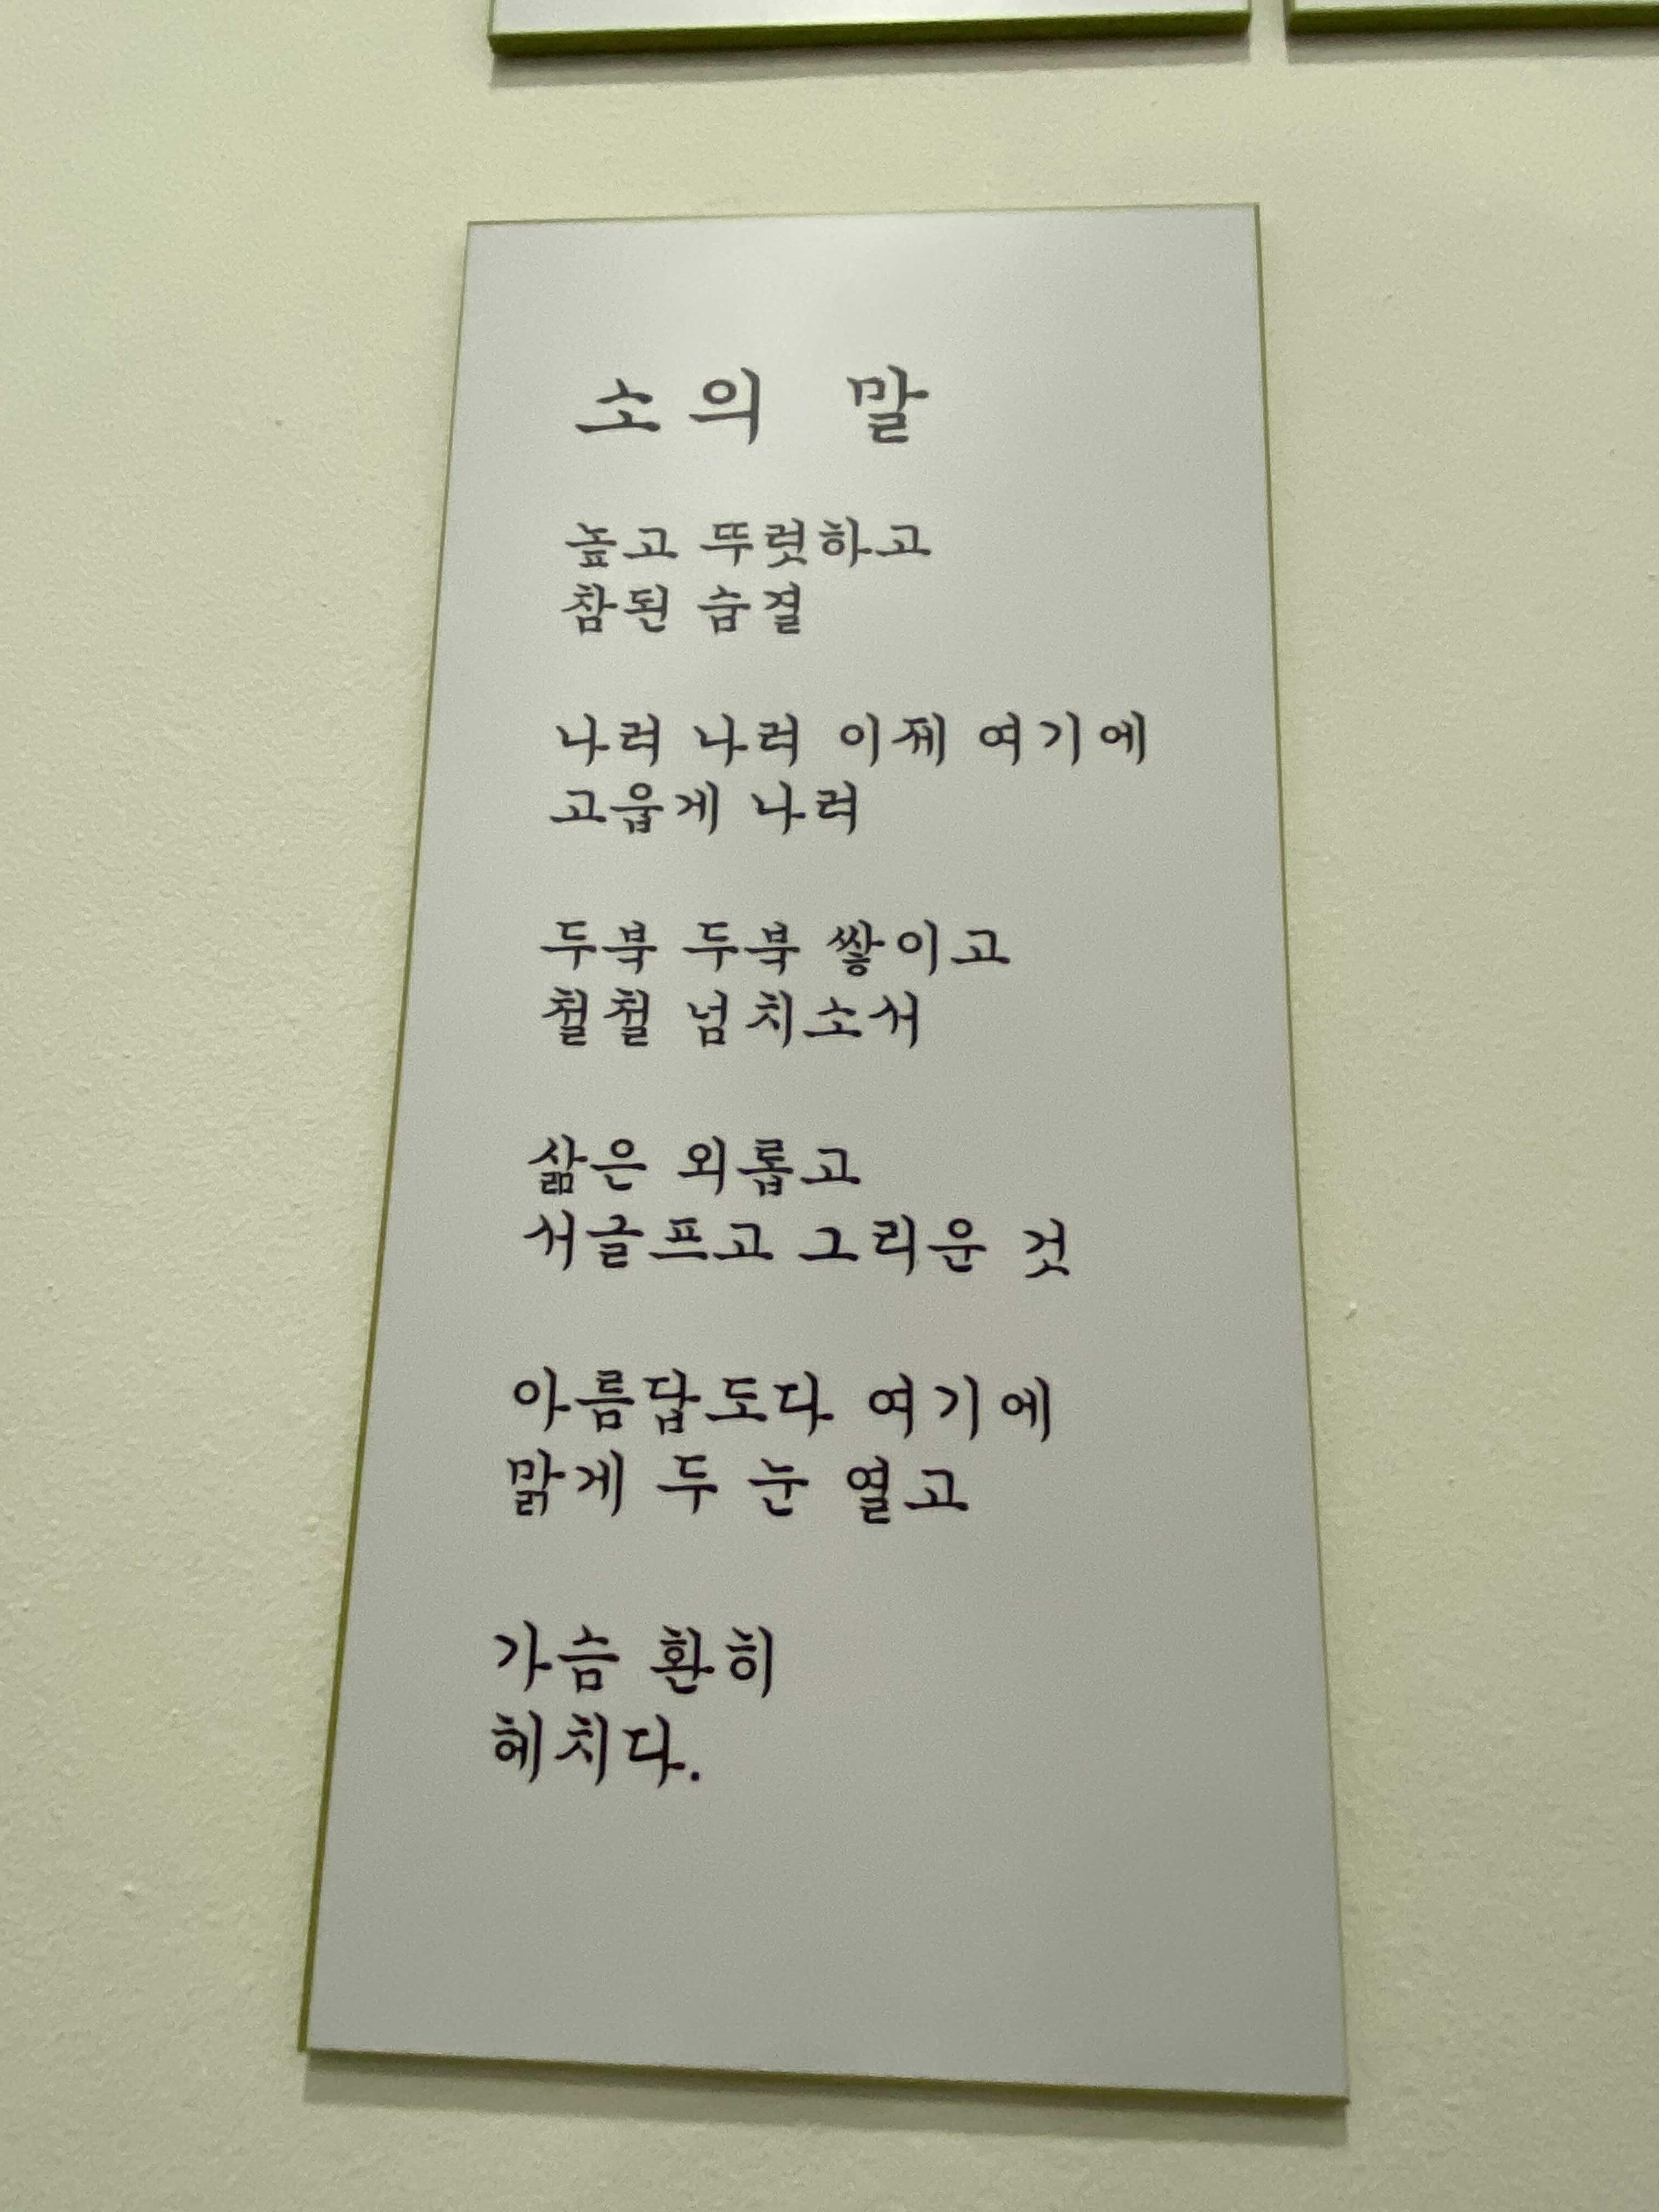 소의 말
높고 뚜렷하고
참된 숨결
나려 나려 이제 여기에
고웁게 나려
두북 두북 쌓이고
철철 넘치소서
삶은 외롭고
서글프고 그리운 것
아름답도다 여기에
맑게 두 눈 열고
가슴 환히
헤치다.